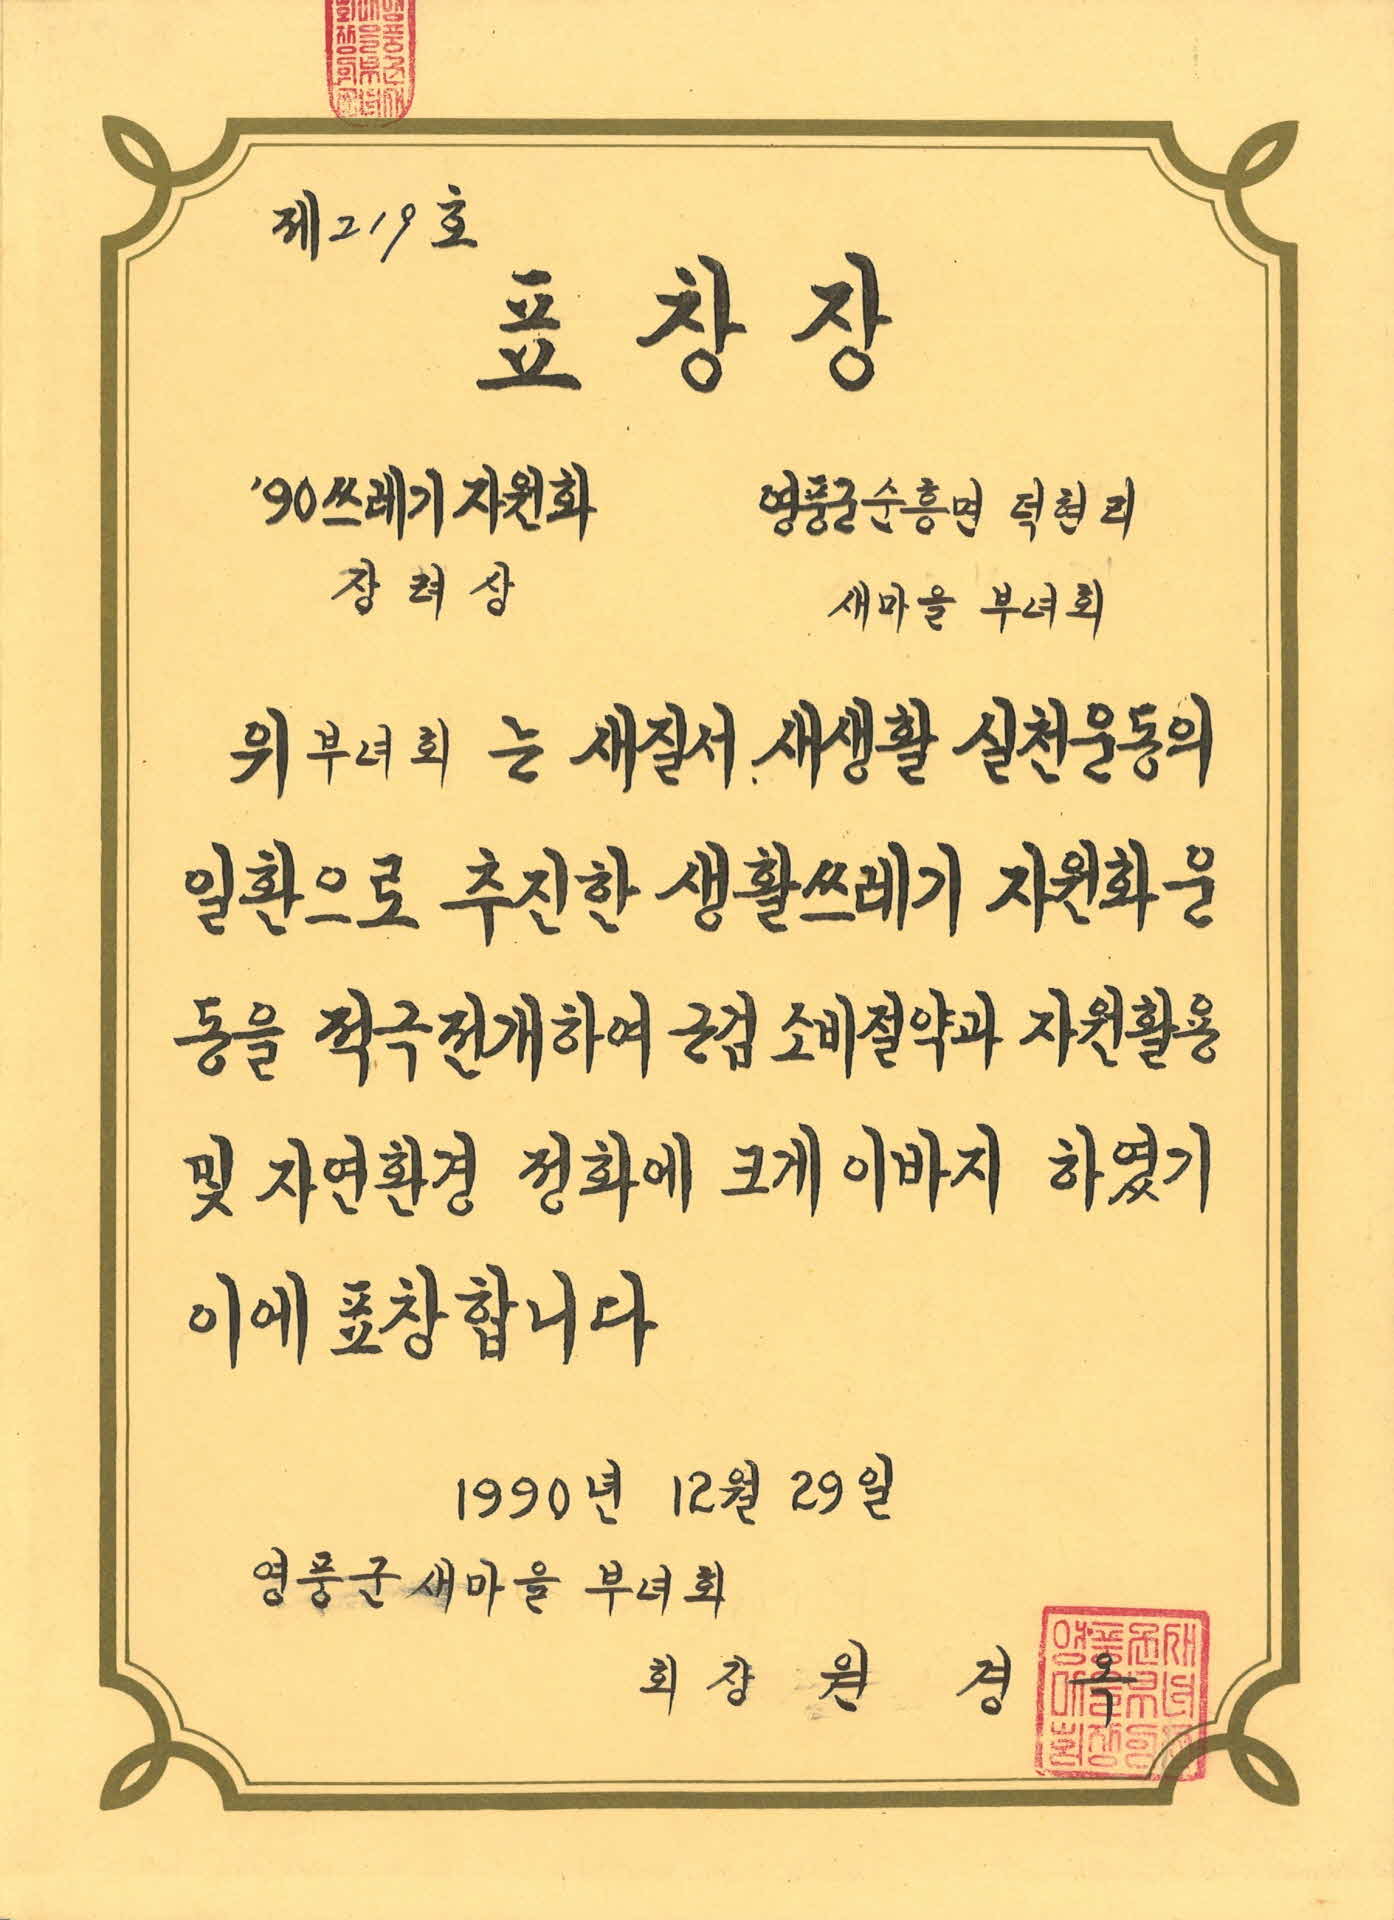 제219호
표창장
'90쓰레기 자원화
장려상
영풍군순흥면 덕현리
새마을 부녀회
위 부녀회 는 새질서.새생활 실천운동의
일환으로 추진한 생활쓰레기 자원화운
동을 적극전개하여 근검 소비절약과 자원활용
및 자연환경 정화에 크게 이바지 하였기
이에 표창합니다
1990년 12월 29일
영풍군 새마을 부녀회
회장 원경옥